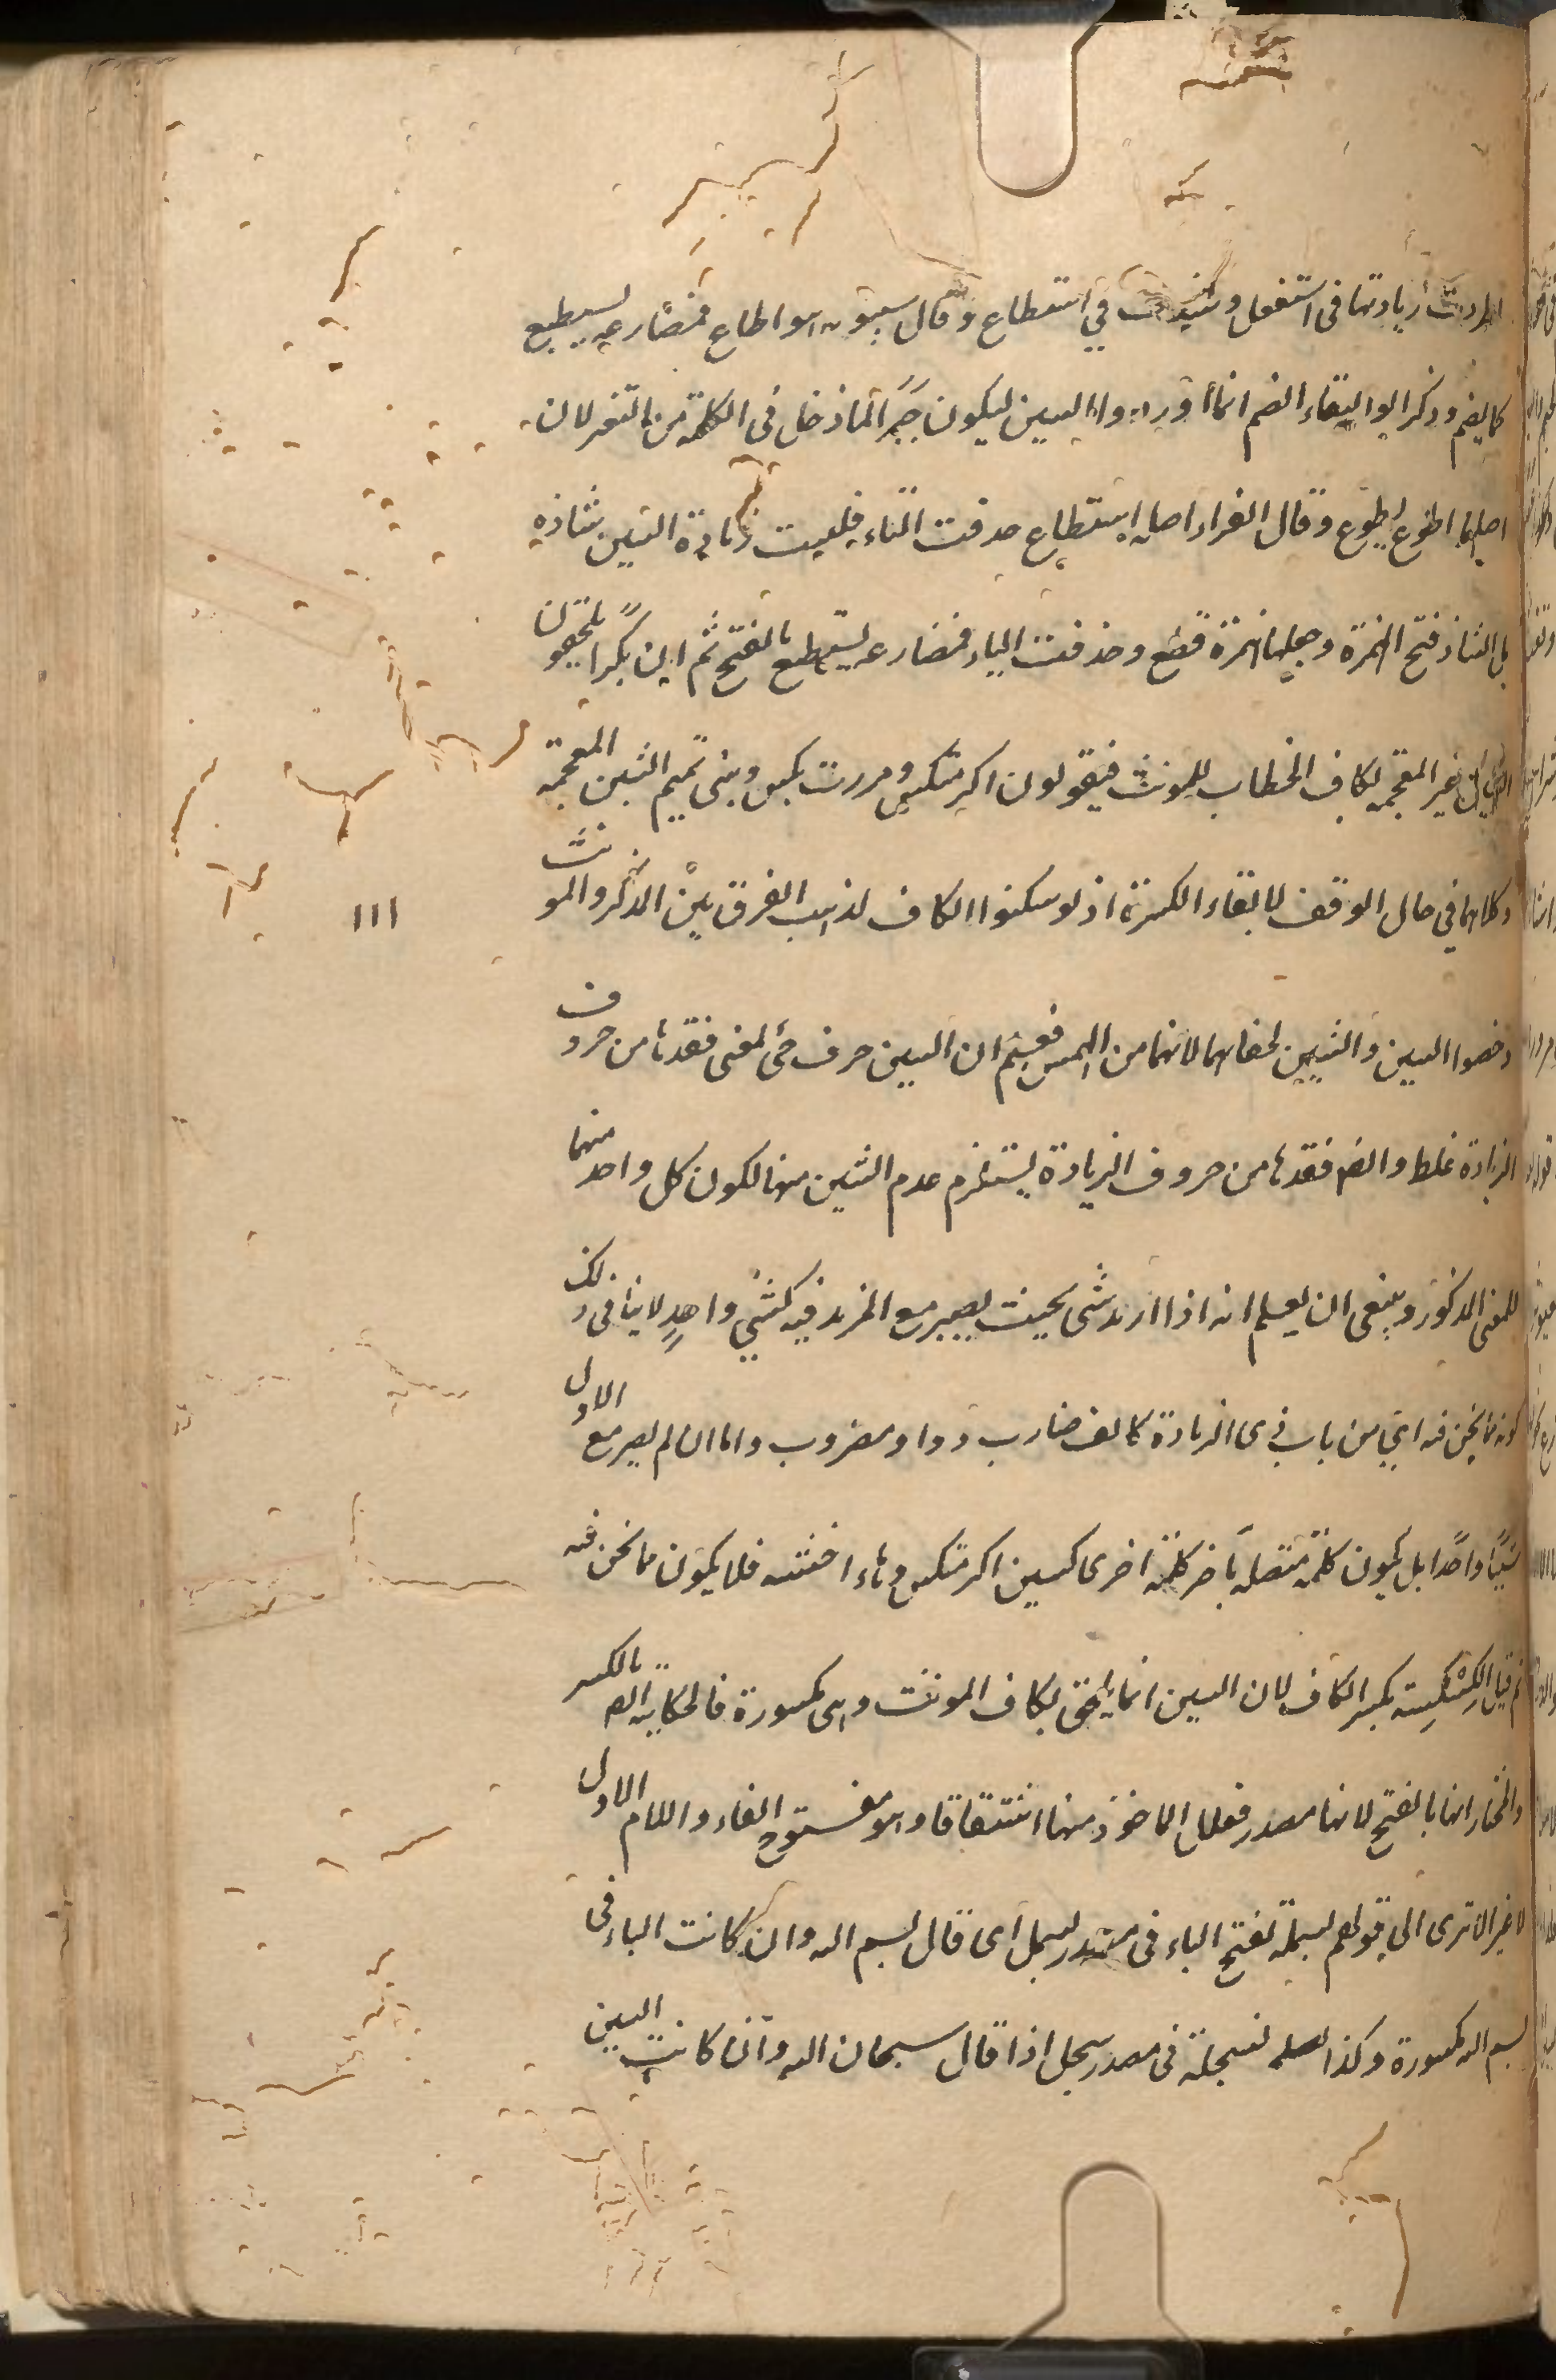 اطردت زيادتها فى استفعل وشذت في اسطاع وقال سيبويه هو اطاع فمضارعه يسطيع
كما يضم وذكر ابو البقاء الضم انما اوردوا السين ليكون جبرا لما دخل فى الكلمة من التغير لان
اصلها اطوع يطوع وقال الفراء اصله استطاع حذفت التاء فليست زيادة السين شاذه
بل الشاذ فتح الهمزة وجعلها همزة قطع وحذفت التاء فمضارعه يسطيع بالفتح ثم ان بكرا يلحقون
السين غير المعجمه لكاف الخطاب للمونث فيقولون اكرمتكس ومررت بكس وبنى تميم الشين المعجمه
وكلاهما في حال الوقف لابقاء الكسرة اذ لو سكنوا الكاف لذهب الفرق بين المذكر والمونث
وخصوا السين والشين لخفائهما لانهما من الهمس فعلم ان السين حرف جئ لمعنى فعدها من حروف
الزيادة غلط وايضا فعدها من حروف الزيادة يستلزم عدم الشين منها لكون كل واحد منهما
للمعنى المذكور وينبغى ان يعلم انه اذا زيد شى بحيث يصير مع المزيد فيه كشئي واحد لا ينافى ذلك
كونه مما نحن فيه اى من باب ذى الزيادة كالف ضارب وواو مضروب واما ان لم يصر مع الاول
شيئا واحدا بل يكون كلمة متصلة باخر كلمة اخرى كسين اكرمتكس وهاء اخشه فلا يكون مما نحن فيه
ثم قيل الكسكسة بكسر الكاف لان السين انما يلحق بكاف المونث وهى مكسورة فالحكاية ايضا بالكسر
والمختار انها بالفتح لانها مصدر فعلل الماخوذ منها اشتقاقا وهو مفتوح الفاء واللام الاول
لا غير الا ترى الى قولهم بسملة بفتح الباء فى مصدر بسمل اى قال بسم الله وان كانت الباء فى
بسم الله مكسورة وكذا سبحلة فى مصدر سبحل اذا قال سبحان الله وان كانت السين
١١١